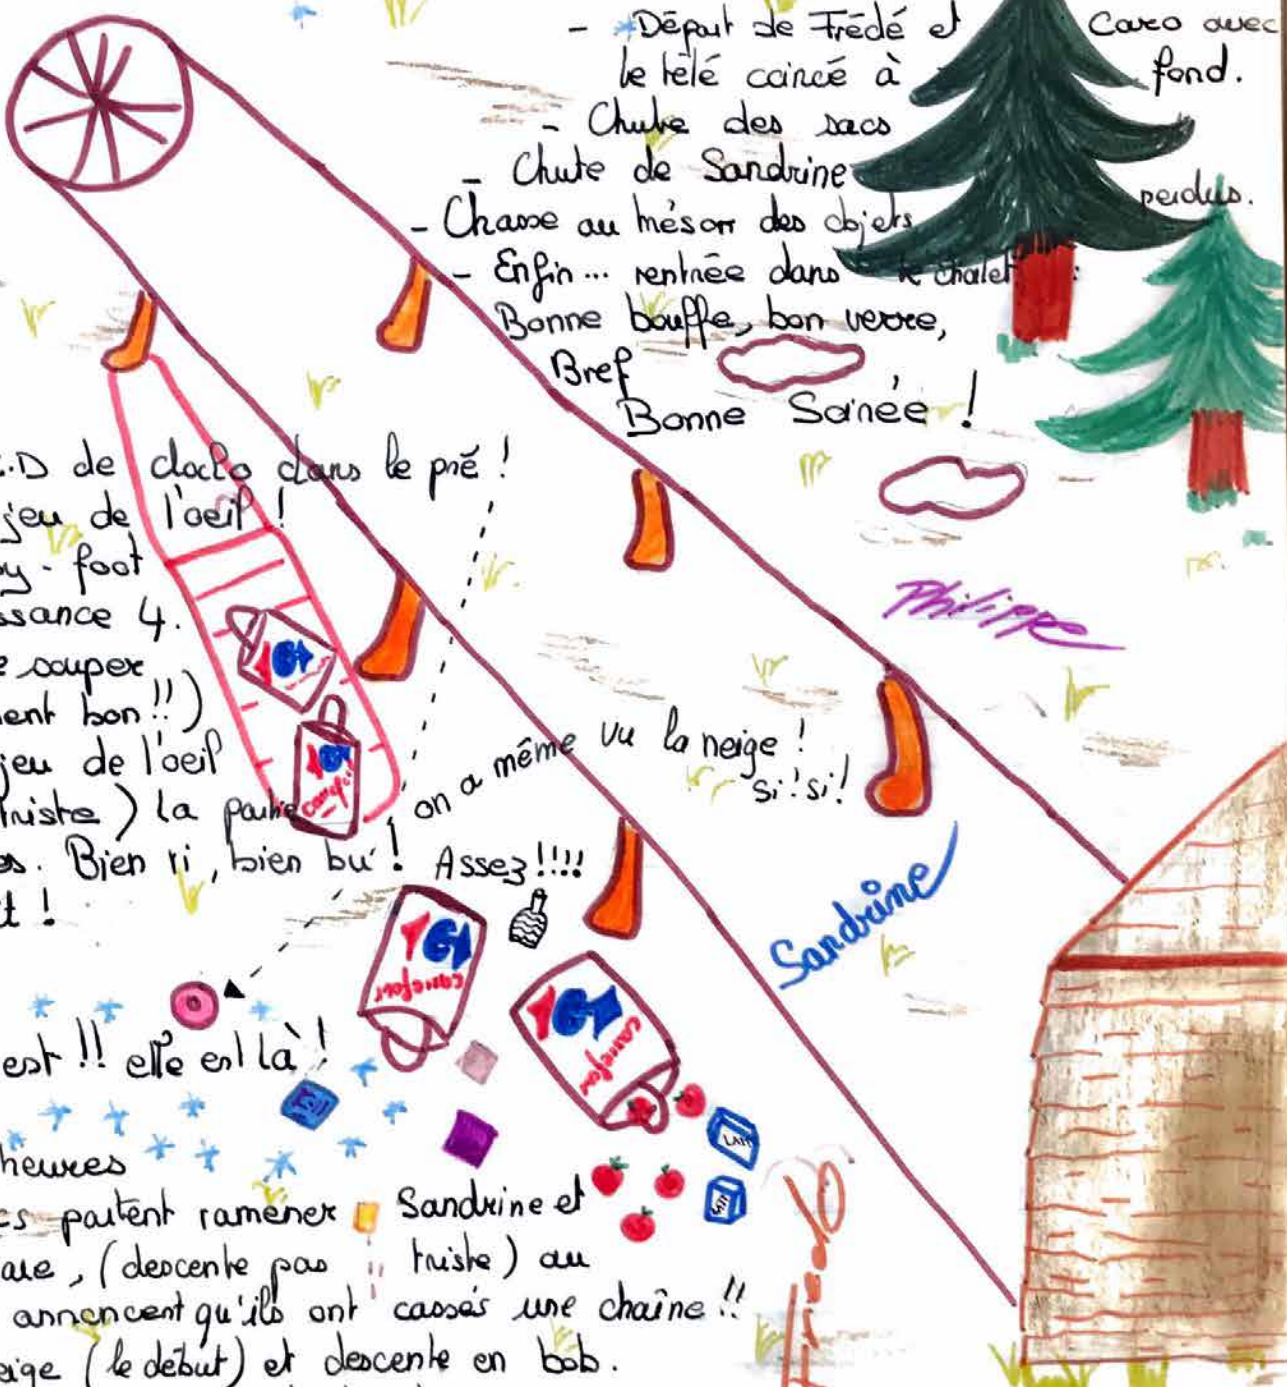 - Départ de Frédé et Caro avec
le télé coincé à fond.
- Chute des sacs
- Chute de Sandrine
- Chasse au trésor des objets perdus.
- Enfin... rentrée dans le chalet :
Bonne bouffe, bon verre,
Bref
Bonne Soirée !
.D de clocho dans le pré !
jeu de l'oeil !
y-foot
ssance 4.
e souper
ment bon !!)
jeu de l'oeil
triste ) la partie
es. Bien ri, bien bu !
t !
on a même vu la neige !
si ! si !
Assez !!!!
Philippe
Sandrine
carrefour
carrefour
carrefour
est !! elle est là !
LAIT
heures
cs partent ramener Sandrine et
are, (descente pas triste) au
annoncent qu'ils ont cassés une chaîne !!
eige (le début) et descente en bob.